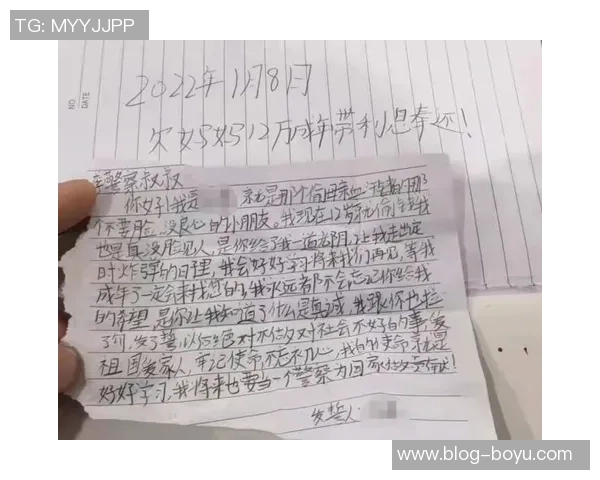 TG: MYYJJPP
NO.
DATE
2022年11月8日
欠妈妈12万成年带利息奉还!
警察叔叔
你好!我是 就是那个偷用亲血汗钱的那
个不要脸,没良心的小朋友。我现在12岁就偷
也是真没脸见人,是你给了我一道光阴,让我走出定
时炸弹的 ,我会好好学习将来我们再见,等我
成年了一定会来找您的,我永远都不会忘记你给我
的希望,是你让我知道了什么是真诚,我跟你也拉
了勾,发了誓,以后绝对不做对社会不好的事,爱
祖国爱家人,牢记使命不忘初心,我的使命就是
好好学习,我将来也要当一个警察为国家做贡献!
发誓人
www.blog-boyu.com